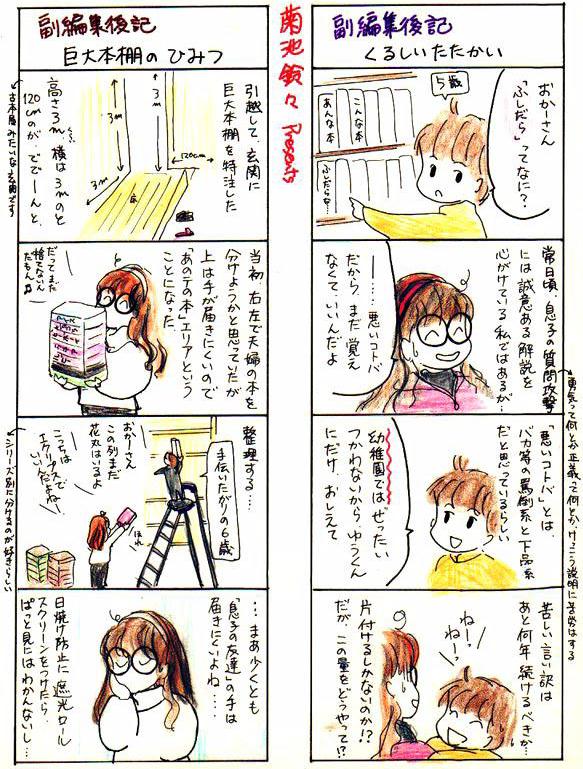 副編集後記
くるしいたたかい
おかーさん
「ふしだら」ってなに?
5歳
こんな本
あんな本
ふしだらな…
常日頃、息子の質問攻撃
には誠意ある解説を
心がけている私ではあるが…
ー……悪いコトバ
だから、まだ覚え
なくて、いいんだよ
「悪いコトバ」とは、
バカ等の罵倒系と下品系
だと思っているらしい
幼稚園ではぜったい
つかわないから ゆうくん
にだけ、おしえて
苦しい言い訳は
あと何年続けるべきか…
ねーっ
ねーっ
片付けるしかないのか!?
だが、この量をどうやって!?
勇気って何とか正義って何とか、けっこう説明に苦労はする
菊池鈴々 Presents
副編集後記
巨大本棚の ひみつ
引越して、玄関に
巨大本棚を特注した
3m
3m
120cm
3m
高さ3m、横は3mのと
120cmのが、ででーんと、
古本屋みたいな玄関です
当初、右左で夫婦の本を
分けようかと思っていたが
上は手が届きにくいので
「あのテの本」エリアという
ことになった。
だってまだ
捨てないん
だもん♪
整理する…
手伝いたがりの6歳
おかーさん
この列まだ
花丸はいるよ
こっちは
エクリプスで
いいんだよねー
ほれ
シリーズ別に分けるのが好きらしい
…まあ少くとも
「息子の友達」の手は
届きにくいよね……
日焼け防止に遮光ロール
スクリーンをつけたら、
ぱっと見にはわかんないし…